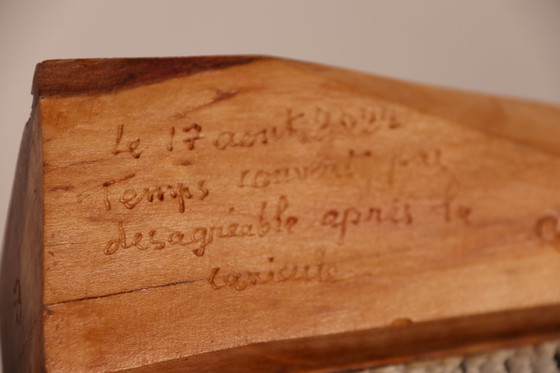 Le 17 aout 2024
Temps couvent pas
desagréable après la
canicule